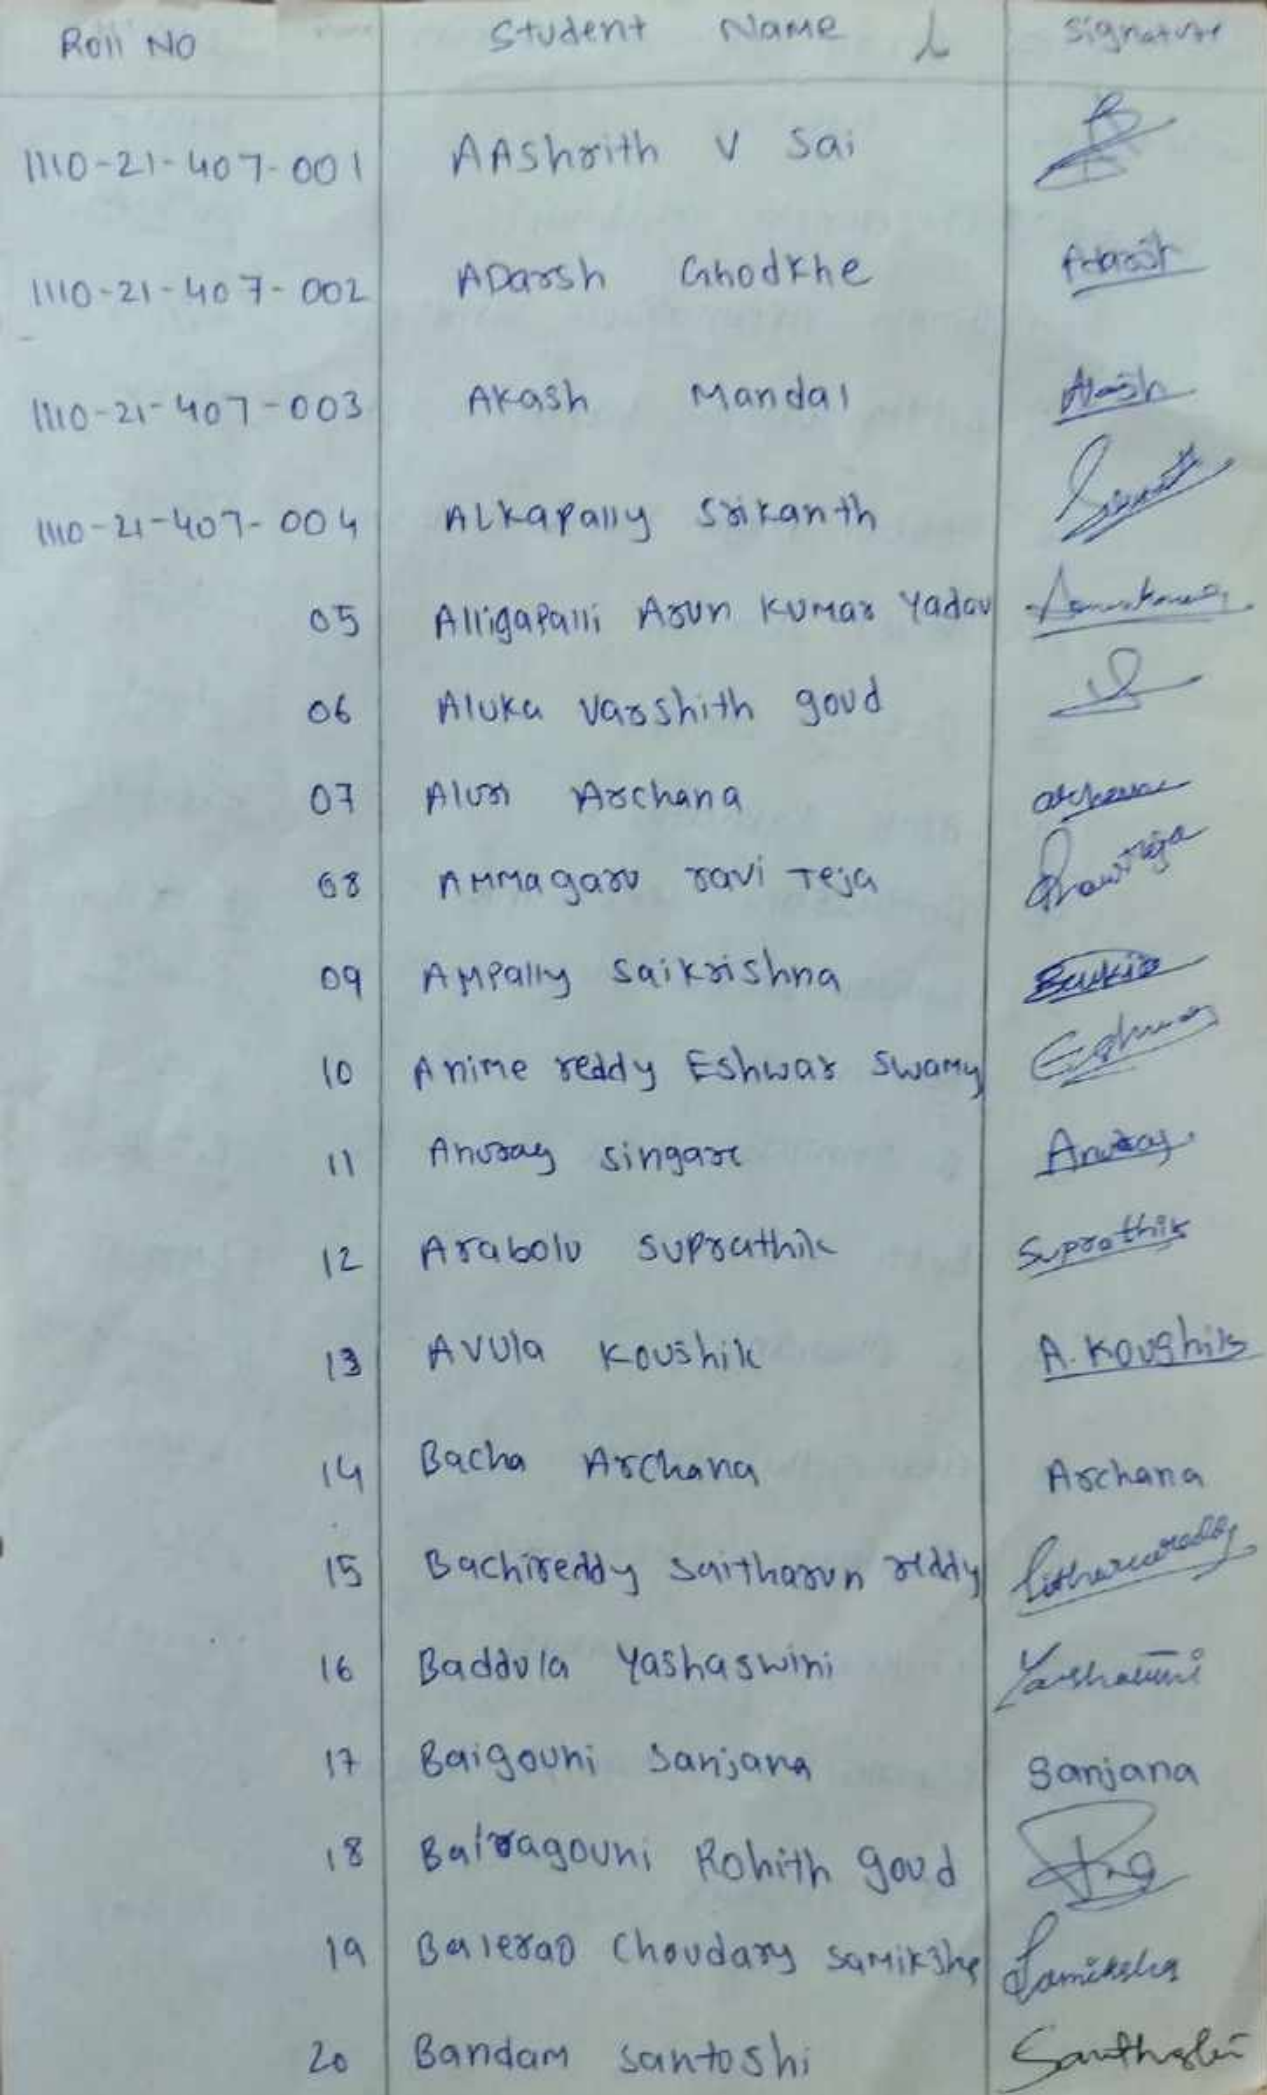 Roll No Student Name Signature
1110-21-407-001 AAshrith V Sai
1110-21-407-002 ADarsh Ghodkhe Adarsh
1110-21-407-003 AKash Mandal Akash
1110-21-407-004 ALKapally Srikanth
05 Alligapalli Arun Kumar Yadav
06 Aluka Varshith goud
07 Aluri Archana archana
08 AMMagaru ravi Teja Raviteja
09 AMPally Saikrishna
10 Anime reddy Eshwar Swamy
11 Anurag singare Anurag
12 Arabolu Suprathik Suprathik
13 Avula Koushik A. Koushik
14 Bacha Archana Archana
15 Bachireddy Saitharun reddy
16 Baddula Yashaswini
17 Baigouni Sanjana Sanjana
18 Bairagouni Rohith goud
19 Balerao Choudary Samiksha Samiksha
20 Bandam Santoshi Santhoshi